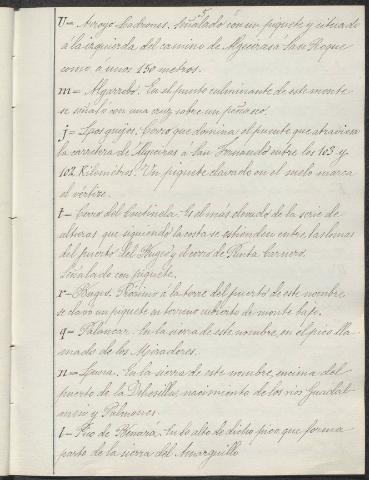 U= Arroyo Ladrones. Señalado con un piquete y situado
á la izquierda del camino de Algeciras á San Roque
como a unos 150 metros.
m= Algarrobo. En el punto culminante de este monte
se señaló con una cruz sobre un peñasco.
j= Cerro que domina el puente que atraviesa
la carretera de Algeciras á San Fernando entre los 103 y
102 Kilometros. Un piquete clavado en el suelo marca
el vértice.
t= Cerro del Centinela. Es el más elevado de la serie de
alturas que siguiendo la costa se estienden entre las lomas
del puerto del y cerro de Punta Carnero.
Señalado con piquete.
r= Próximo á la torre del puerto de este nombre,
se clavó un piquete en terreno cubierto de monte bajo.
q= Palancar. En la sierra de este nombre, en el pico lla
mado de los Miradores.
n= Luna. En la sierra de este nombre, encima del
puerto de la Dehesilla, nacimiento de los rios Guadal
mesi y Palmones.
l= Pico de En lo alto de dicho pico, que forma
parte de la sierra del Amarguillo